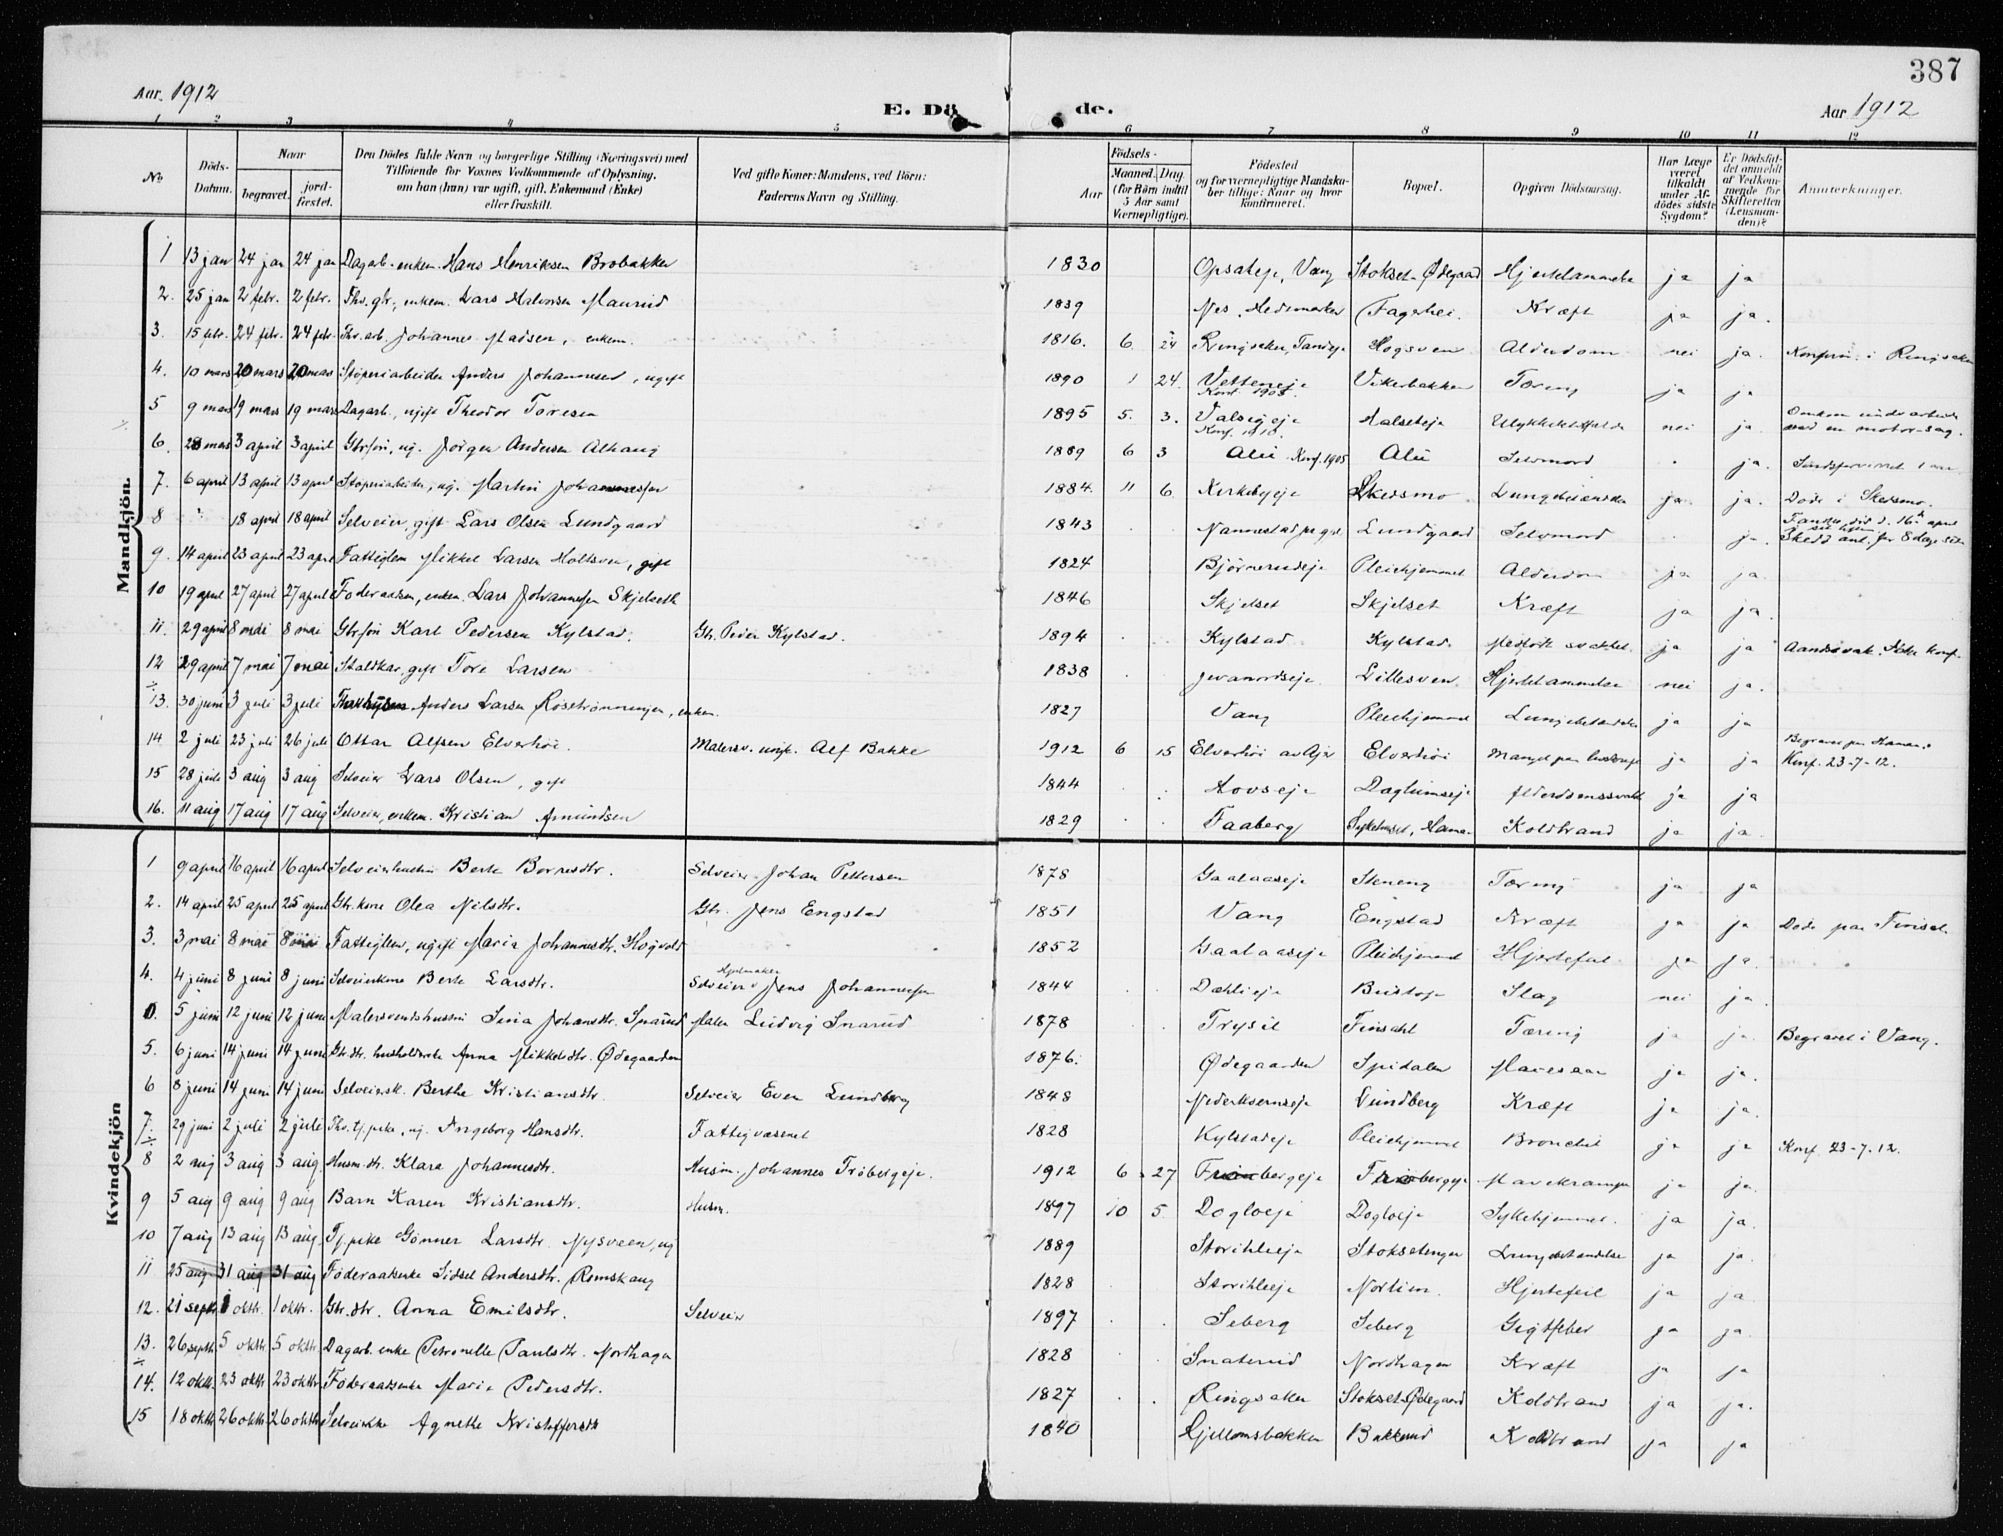 387
Aar 1912
E. Döde.
Aar 1912
1 2 3 4 5 6 7 8 9 10 11 12
No.
Döds-Datum.
Naar
begravet.
jord-fæstet.
Den Dödes fulde Navn og borgerlige Stilling (Næringsvei) med
Tilföiende for Voxnes Vedkommende af Oplysning,
om han (hun) var ugift, gift, Enkemand (Enke)
eller fraskilt.
Ved gifte Koner: Mandens, ved Börn:
Faderens Navn og Stilling.
Födsels-
Aar
Maaned. Dag.
(for Börn indtil
5 Aar samt
Værnepligtige).
Födested
og for værnepligtige Mandska-
ber tillige: Naar og hvor
konfirmeret.
Bopæl.
Opgiven Dödsaarsag.
Har Læge
været
tilkaldt
under Af-
dödes sidste
Sygdom?
Er Dödsfal-
det anmeldt
af Vedkom-
mende for
Skifteretten
(Lensman-
den)?
Anmærkninger.
Mandkjön.
1 13 jan 24 jan 24 jan Dagarb. enkem. Hans Henriksen Brobakken 1830 Vang Stokset-Ødegaard Hjertelammelse ja ja
2. 25 jan 2 febr. 2 febr. enkem. Lars Halvorsen Maurud 1839 Nes, Hedemarken Fagerhei. Kræft ja ja.
3. 15 febr. 24 febr. 24 febr. Johannes Madsen, enkem. 1816. 6 24 Ringsaker, Hogsven Alderdom nei ja. Konfirm. i Ringsaker
4. 10 mars 20 mars 20 mars Støperiarbeider Anders Johannesen, ugift 1890 1 24. Vetteneje Konf. 1905. Vikerbakken Tæring ja ja
5 9 mars 19 mars 19 mars Dagarb., ugift Theodor Toresen 1895 5. 3. Konf. 1910. Halseteje Ulykkestilfælde nei ja. Omkom under arbeide med en motor-sag.
6. 28 mars 3 april 3 april Gbr.søn, ug. Jørgen Andersen Alhaug 1889 6 3 Konf. 1905 Selvmord ja. Sindsforvirret
7. 6 april 13 april 13 april Støperiarbeider, ug. Martin Johannessen 1884. 11 6. Kirkebyeje Skedsmo Lungebetændelse ja. ja. Døde i Skedsmo.
8 18 april 18 april Selveier, gift Lars Olsen Lundgaard 1843 Nannestad Lundgaard Selvmord ja. Fandtes død d. 16 april
9. 14 april 23 april 23 april Fattiglem Mikkel Larsen Holtsven, gift 1824 Bjørnerudeje Pleiehjemmet Alderdom ja ja.
10 19 april 27 april 27 april Føderaadsm., enkem. Lars Johannessen Skjelseth 1846 Skjelset Skjelset Kræft ja ja.
11. 29 april 8 mai 8 mai Gbr.søn Karl Pedersen Kylstad. Gbr. Peder Kylstad. 1894 Kylstad Kylstad Medfødt svakhet ja ja Aandssvak. Ikke konf.
12 29 april 7 mai 7 mai Staldkar, gift Tore Larsen 1838 Lillesven Hjertelammelse nei ja.
13. 30 juni 3 juli 3 juli Anders Larsen Røsetrønningen, enkem. 1827 Vang Pleiehjemmet Lungebetændelse ja ja
14 2 juli 23 juli 26 juli Ottar Alfsen Elverhøi. Malersv. Alf Bakke 1912 6 15 Elverhøi Elverhøi Mangel paa livskraft ja ja Konf. 23-7-12.
15 28 juli 3 aug 3 aug Selveier Lars Olsen, gift 1844 Hovseje Alderdomssvakhet ja ja
16. 11 aug 17 aug 17 aug Selveier, enkem. Kristian Amundsen 1829 Faaberg Sykehuset, Hamar Koldbrand ja ja.
Kvindekjön
1 9 april 16 april 16 april Selveierhustru Berte Bornesdtr. Selveier Johan Pettersen 1878 Gaalaaseje Steneng Tæring ja ja
2. 14 april 25 april 25 april Gbr.kone Olea Nilsdtr. Gbr. Jens Engstad 1851 Vang Engstad Kræft ja ja Døde paa
3. 3 mai 8 mai 8 mai Fattiglem, ugift Maria Johannesdtr. Hogvold 1852 Gaalaaseje Pleiehjemmet Hjertefeil ja ja.
4. 4 juni 8 juni 8 juni Selveierkone Berte Larsdtr. Hjulmaker Selveier Jens Johannessen 1844 Dæhlieje Slag nei ja.
0. 5 juni 12 juni 12 juni Malersvendshustru Sina Johansdtr. Snarud Maler Ludvig Snarud 1878 Trysil Finsahl Tæring ja ja. Begravet i Vang.
5. 6 juni 14 juni 14 juni Gbr.dtr. husholderske Anna Mikkelsdtr. Ødegaarden 1876. Ødegaarden Spidalen Mavesaar ja ja.
6 8 juni 14 juni 14 juni Selveiersk. Berthe Kristiansdtr. Selveier Even Lundberg 1848 Lundberg Kræft ja ja
7. 29 juni 2 juli 2 juli ug. Ingeborg Hansdtr. Fattigvæsenet 1828 Kylstadeje Pleiehjemmet Bronchit ja ja Konf. 23-7-12.
8 2 aug 3 aug 3 aug. Husm.dtr. Klara Johannesdtr. Husm. Johannes Frøbergeje. 1912 6 27 Frøbergeje Frøbergeje Mavekrampe ja ja.
9 5 aug 9 aug 9 aug. Barn Karen Kristiansdtr. Husm. 1897 10 5. Dogloeje Dogloeje Sykehjemmet. ja ja.
10 7 aug 13 aug 13 aug. Tj.pike Gønner Larsdtr. Nysveen, ug 1889 Storihleeje Stoksetenger Lungebetændelse ja ja
11 25 aug 31 aug 31 aug Føderaadsenke Sidsel Andersdtr. Romskaug 1828 Storihleeje Nortien. Hjertefeil ja ja.
12. 21 septb. 1 oktbr. 1 oktbr. Gbr.dtr. Anna Emilsdtr. Selveier 1897 Seberg Seberg Gigtfeber ja ja.
13. 26 septb. 5 oktbr 5 oktbr. Dagarb. enke Petronelle Paulsdtr. Nordhagen 1828 Snaterud Nordhagen Kræft ja ja
14. 12 oktbr. 23 oktbr 23 oktbr Føderaadsenke Marie Pedersdtr. 1827 Ringsaker Stokset-Ødegaard Koldbrand ja ja.
15 18 oktbr 26 oktbr 26 oktbr Selveierenke Agnethe Kristoffersdtr 1840 Gjellomsbakken Bakkerud Koldbrand ja ja